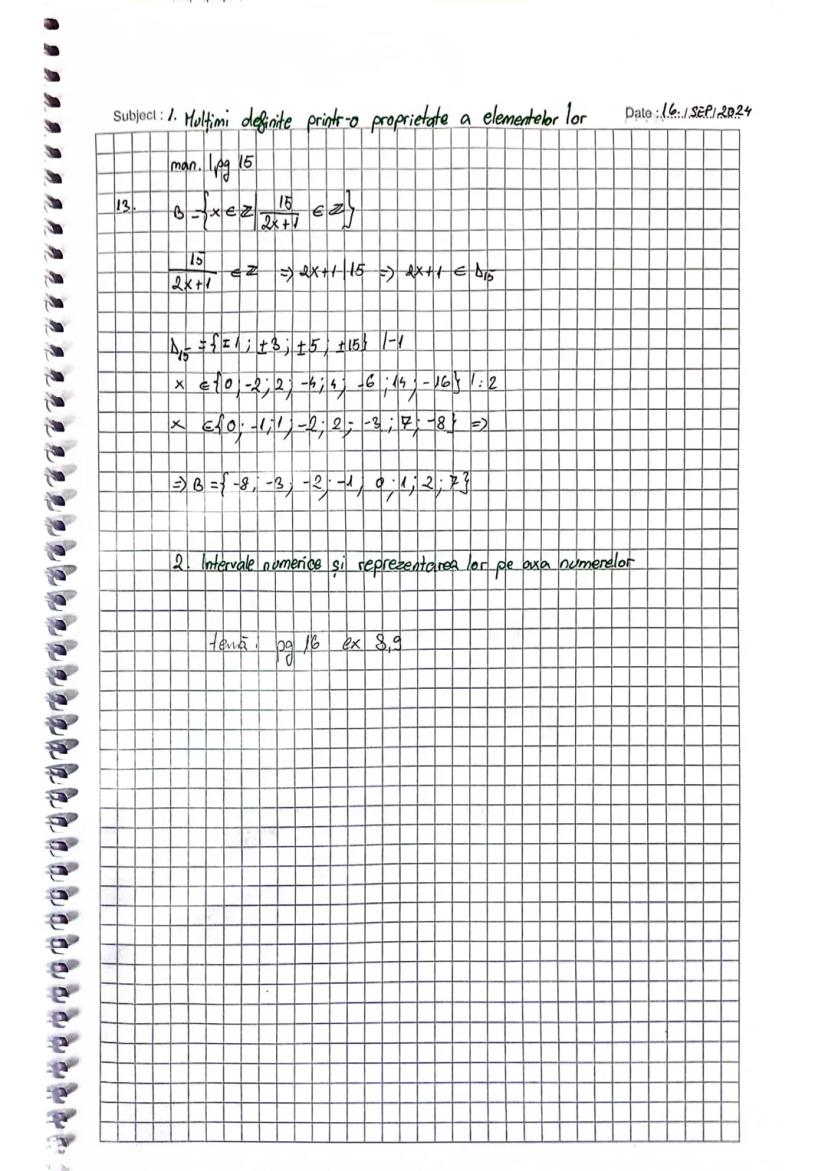 Subject : 1. Mulțimi definite printr-o proprietate a elementelor lor Date : 16 / SEP / 2024
man. | pg 15
13. B = {x ∈ Z | 15/(2x+1) ∈ Z}
15/(2x+1) ∈ Z => 2x+1 | 15 => 2x+1 ∈ D₁₅
D₁₅ = {±1; ±3; ±5; ±15} |-1
x ∈ {0; -2; 2; -4; 4; -6; 14; -16} |:2
x ∈ {0; -1; 1; -2; 2; -3; 7; -8} =>
=> B = {-8; -3; -2; -1; 0; 1; 2; 7}
2. Intervale numerice și reprezentarea lor pe axa numerelor
temă: pg 16 ex 8,9